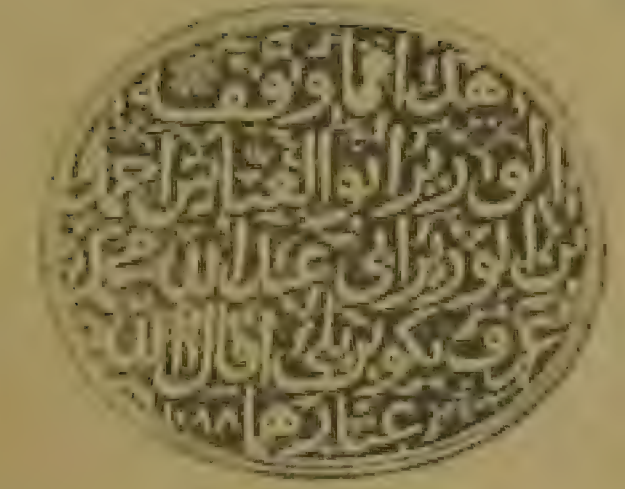 هذا مما وقفه
الوزير أبو العباس أحمد
بن الوزير أبي عبد الله محمد
عرف بكوبريلي أقال الله
عثارهما ١٠٨٨